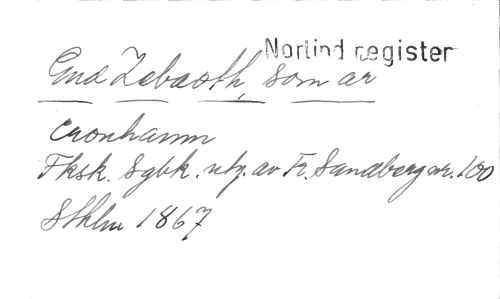 Norlind register
Gud Zebaoth, som är
Cronhamn
Fksk. Sgbk. utg. av Fr. Sandberg nr. 100
Sthlm 1867